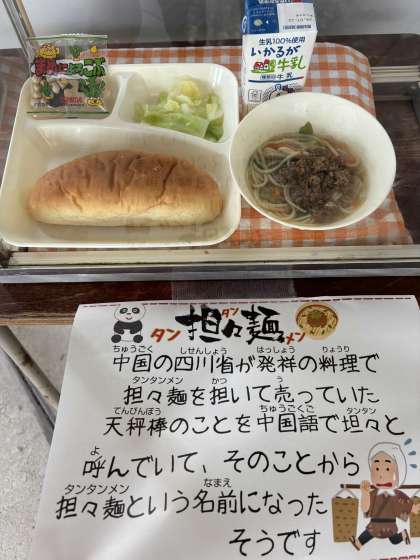 生乳100%使用
いかるが
牛乳
種類別 牛乳
タン 担々麺 メン
タン
ちゅうごく しせんしょう はっしょう りょうり
中国の四川省が発祥の料理で
タンタンメン かつ う
担々麺を担いて売っていた
てんびんぼう ちゅうごくご タンタン
天秤棒のことを中国語で坦々と
よ
呼んでいて、そのことから
タンタンメン なまえ
担々麺という名前になった
そうです